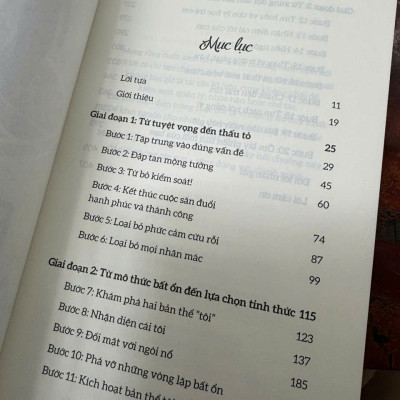 Mục lục
Lời tựa 11
Giới thiệu 19
Giai đoạn 1: Từ tuyệt vọng đến thấu tỏ 25
Bước 1: Tập trung vào đúng vấn đề 29
Bước 2: Đập tan mộng tưởng 45
Bước 3: Từ bỏ kiểm soát! 60
Bước 4: Kết thúc cuộc săn đuổi
hạnh phúc và thành công 74
Bước 5: Loại bỏ phức cảm cứu rỗi 87
Bước 6: Loại bỏ mọi nhãn mác 99
Giai đoạn 2: Từ mô thức bất ổn đến lựa chọn tỉnh thức 115
Bước 7: Khám phá hai bản thể "tôi" 123
Bước 8: Nhận diện cái tôi 137
Bước 9: Đối mặt với ngòi nổ 185
Bước 10: Phá vỡ những vòng lặp bất ổn
Bước 11: Kích hoạt bản thể